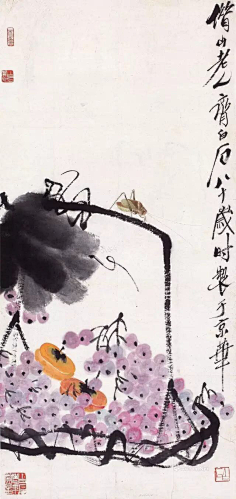 借山老人齊白石八十歲時製于京華